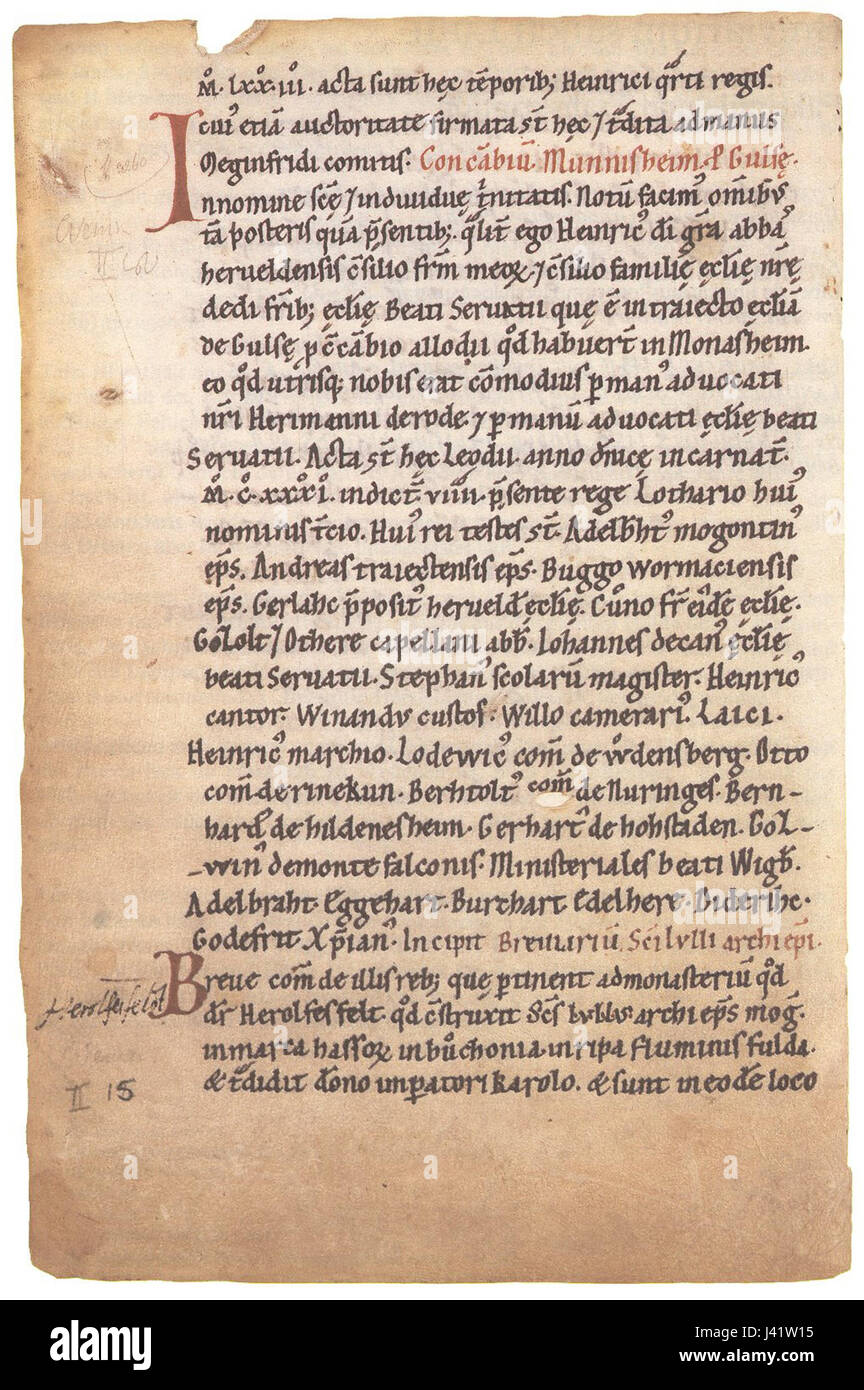 M̊. lxx̊. iii̊. acta sunt hęc tēporib; Heinrici qͦrti regis.
cui᾽ etiā auctoritate firmata st̄ hęc ⁊ t᷑dita ad manus
Meginfridi comitis. Concābiū Munnisheim & Gulsę.
Innomine scę̄ ⁊ indiuiduę t̄nitatis. Notū facim᾽ om̄ib᾽
tā posteris quā p̄sentib;. qͣlit̄ ego Heinric᾽ dī gr̄a abba᾽
herueldensis c̄silio fr̄m meoꝝ ⁊ c̄silio familię ęcl̄ię nr̄ę
dedi fr̄ib; ęcl̄ię Beati Seruatii quę ē in traiecto ęcl̄iā
de Gulsę p c̄cābio allodii qͦd habuer̄t in Monasheim.
eo qͦd utrisq; nobis erat cōmodius p man᾽ aduocati
nr̄i Herimanni de rode. ⁊ p manū aduocati ęcl̄ię beati
Seruatii. Acta st̄ hęc Leodii. anno dn̄icę incarnat̄.
M̊. C̊. xxxı̊. indict̄. viiii. p̄sente rege Lothario hui᾽
nominis t̄cio. Hui᾽ rei testes st̄. Adelbht᾽ mogontin᾽
ep̄s. Andreas traiectensis ep̄s. Buggo wormaciensis
ep̄s. Gerlahc p̄posit᾽ herueld̄ ęcl̄ię. Cůno fr̄ ei᾽dē ęcl̄ię.
Gozolt ⁊ Othere capellani abb̄. Iohannes decan᾽ ęcl̄ię
beati Seruatii. Stephan᾽ scolarū magister. Heinric᾽
cantor. Winand᾽ custos. Willo camerari᾽. Laici.
Heinric᾽ marchio. Lodewic᾽ com̄ de wůdensberg. Otto
com̄ de rinekun. Berhtolt᾽ com̄ de Nuringes. Bern-
hard᾽ de hildenesheim. Gerhart᾽ de hohstaden. Goz-
-win᾽ de monte falconis. Ministeriales beati Wigb̄.
Adelbraht. Eggehart. Burchart. Edelhere. Diderihc.
Godefrit. Xp̄ian᾽. Incipit Breuiariū Sc̄i lvlli archiep̄i.
Breue com̄ de illis reb; quę ptinent ad monasteriū qͦd
dr̄ Herolfesfelt. qͦd c̄struxit Sc̄s lvllvs archiep̄s mog̃.
in marca hassoꝝ in bůchonia. in ripa fluminis fulda.
& t᷑didit dōno impatori karolo. & sunt in eodē loco
Herolfesfeld
II 15
alamy
Image ID: J41W15
www.alamy.com